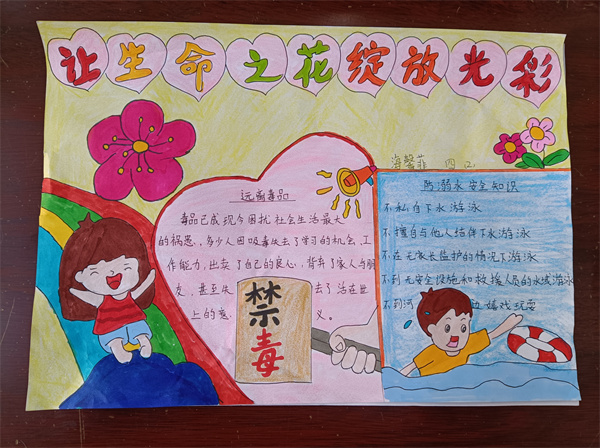 让生命之花绽放光彩
海馨菲 四(2)
远离毒品
毒品已成现今困扰社会生活最大
的祸患,多少人因吸毒失去了学习的机会、工
作能力,出卖了自己的良心,背弃了家人与朋
友,甚至失 去了活在世
上的意 义。
禁毒
防溺水安全知识
不私自下水游泳
不擅自与他人结伴下水游泳
不在无家长监护的情况下游泳
不到无安全设施和救援人员的水域游泳
不到河 边嬉戏玩耍